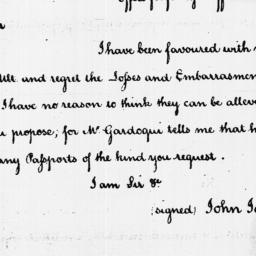 I have been favoured with
Ult. and regret the Losses and Embarrasmen
I have no reason to think they can be allev
propose; for Mr. Gardoqui tells me that h
any Passports of the kind you request.
I am Sir &c
(signed) John J